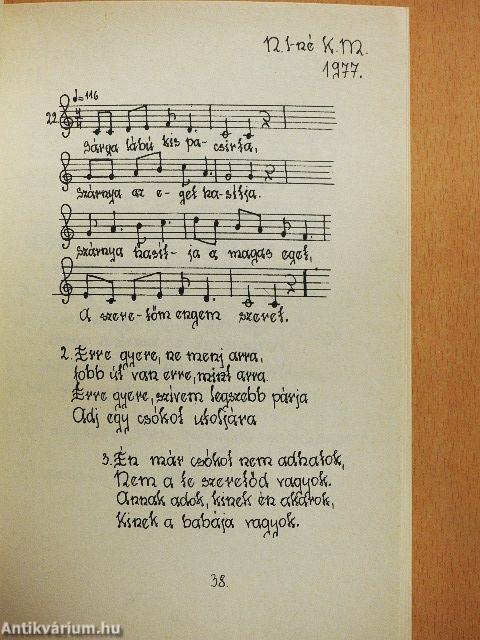 N. I-né K.M.
1977.
♩=116
22.
Sárga lábú kis pa- csirta,
Szárnya az e- get ha- sítja.
szárnya hasít- ja a magas eget,
A szere- tőm engem szeret.
2. Erre gyere, ne menj arra,
Jobb út van erre, mint arra.
Erre gyere, szívem legszebb párja
Adj egy csókot utoljára
3. Én már csókot nem adhatok,
Nem a te szeretőd vagyok.
Annak adok, kinek én akarok,
Kinek a babája vagyok.
38.
Antikvárium.hu